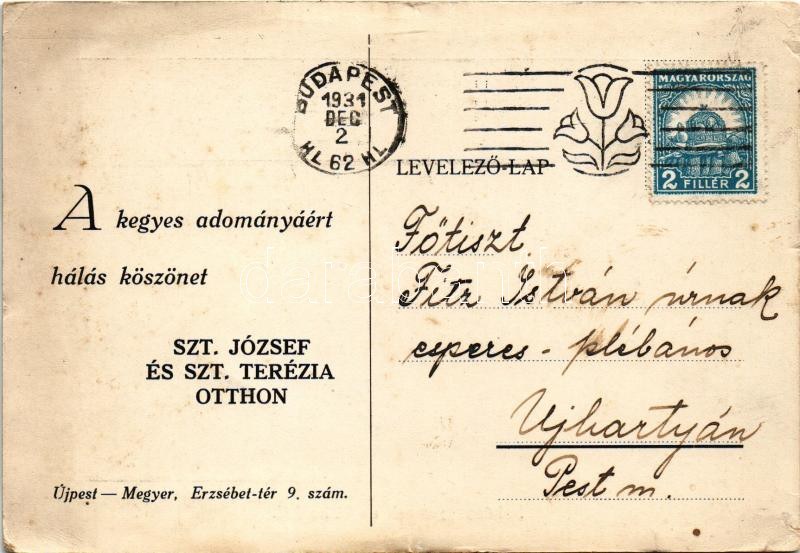 BUDAPEST
1931
DEC
2
HL 62 HL
MAGYARORSZÁG
2 FILLÉR 2
LEVELEZŐ-LAP
A kegyes adományáért
hálás köszönet
SZT. JÓZSEF
ÉS SZT. TERÉZIA
OTTHON
Újpest — Megyer, Erzsébet-tér 9. szám.
Főtiszt.
Fitz István úrnak
esperes - plébános
Ujhartyán
Pest m.
darabanth